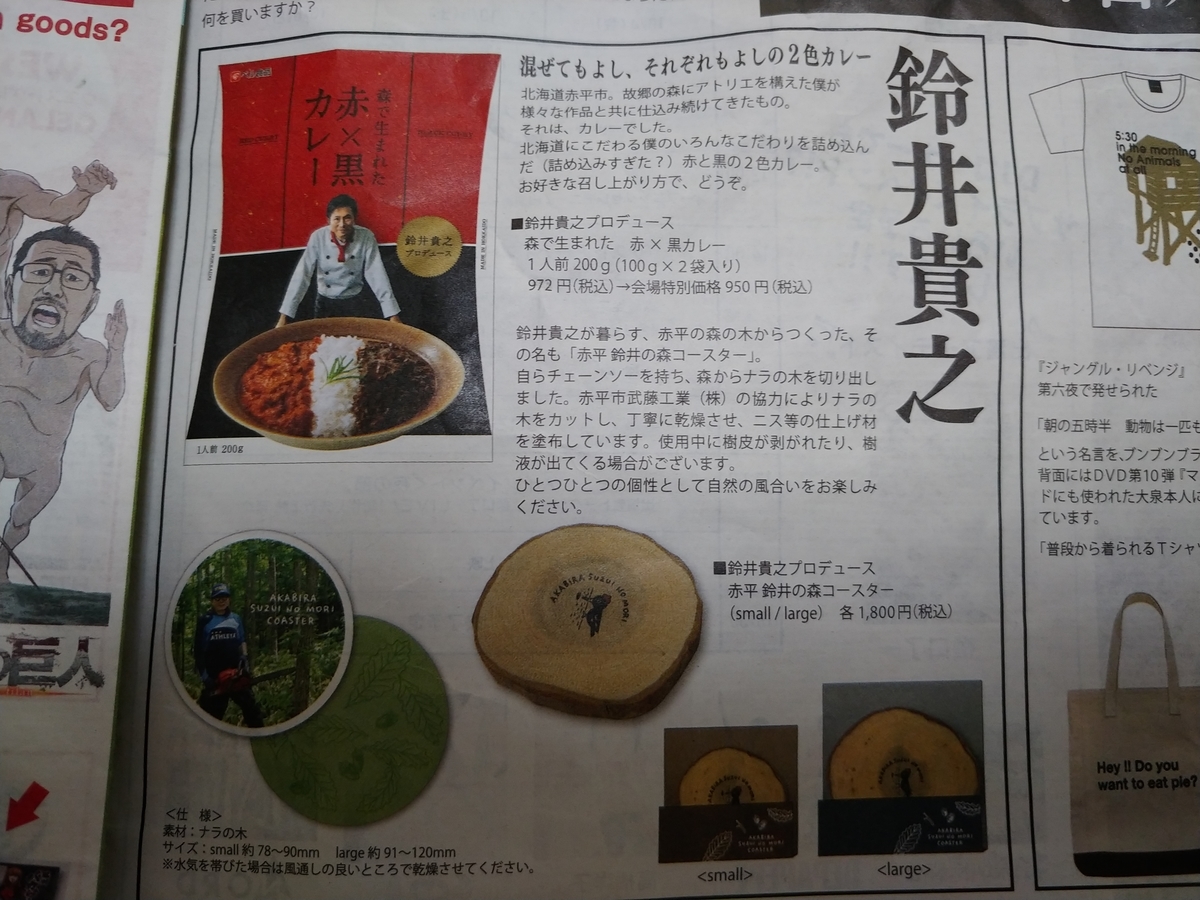 goods?
何を買いますか？
鈴井貴之
混ぜてもよし、それぞれもよしの２色カレー
北海道赤平市。故郷の森にアトリエを構えた僕が
様々な作品と共に仕込み続けてきたもの。
それは、カレーでした。
北海道にこだわる僕のいろんなこだわりを詰め込ん
だ（詰め込みすぎた？）赤と黒の２色カレー。
お好きな召し上がり方で、どうぞ。
■鈴井貴之プロデュース
森で生まれた　赤 × 黒カレー
１人前 200ｇ(100ｇ×２袋入り)
972 円(税込)→会場特別価格 950 円(税込)
森で生まれた
赤×黒
カレー
鈴井貴之
プロデュース
1人前 200g
鈴井貴之が暮らす、赤平の森の木からつくった、そ
の名も「赤平 鈴井の森コースター」。
自らチェーンソーを持ち、森からナラの木を切り出し
ました。赤平市武藤工業（株）の協力によりナラの
木をカットし、丁寧に乾燥させ、ニス等の仕上げ材
を塗布しています。使用中に樹皮が剥がれたり、樹
液が出てくる場合がございます。
ひとつひとつの個性として自然の風合いをお楽しみ
ください。
AKABIRA
SUZUI NO MORI
COASTER
AKABIRA SUZUI NO MORI
■鈴井貴之プロデュース
赤平 鈴井の森コースター
(small / large)　各 1,800 円(税込)
AKABIRA
SUZUI NO MORI
COASTER
<small>
AKABIRA
SUZUI NO MORI
COASTER
<large>
＜仕　様＞
素材：ナラの木
サイズ：small 約 78〜90mm　large 約 91〜120mm
※水気を帯びた場合は風通しの良いところで乾燥させてください。
巨人
5:30
in the morning
No Animals
at all
『ジャングル・リベンジ』
第六夜で発せられた
「朝の五時半　動物は一匹も
という名言を、ブンブンブラ
背面にはDVD第10弾『マ
ドにも使われた大泉本人に
ています。
「普段から着られるTシャツ
Hey !! Do you
want to eat pie?